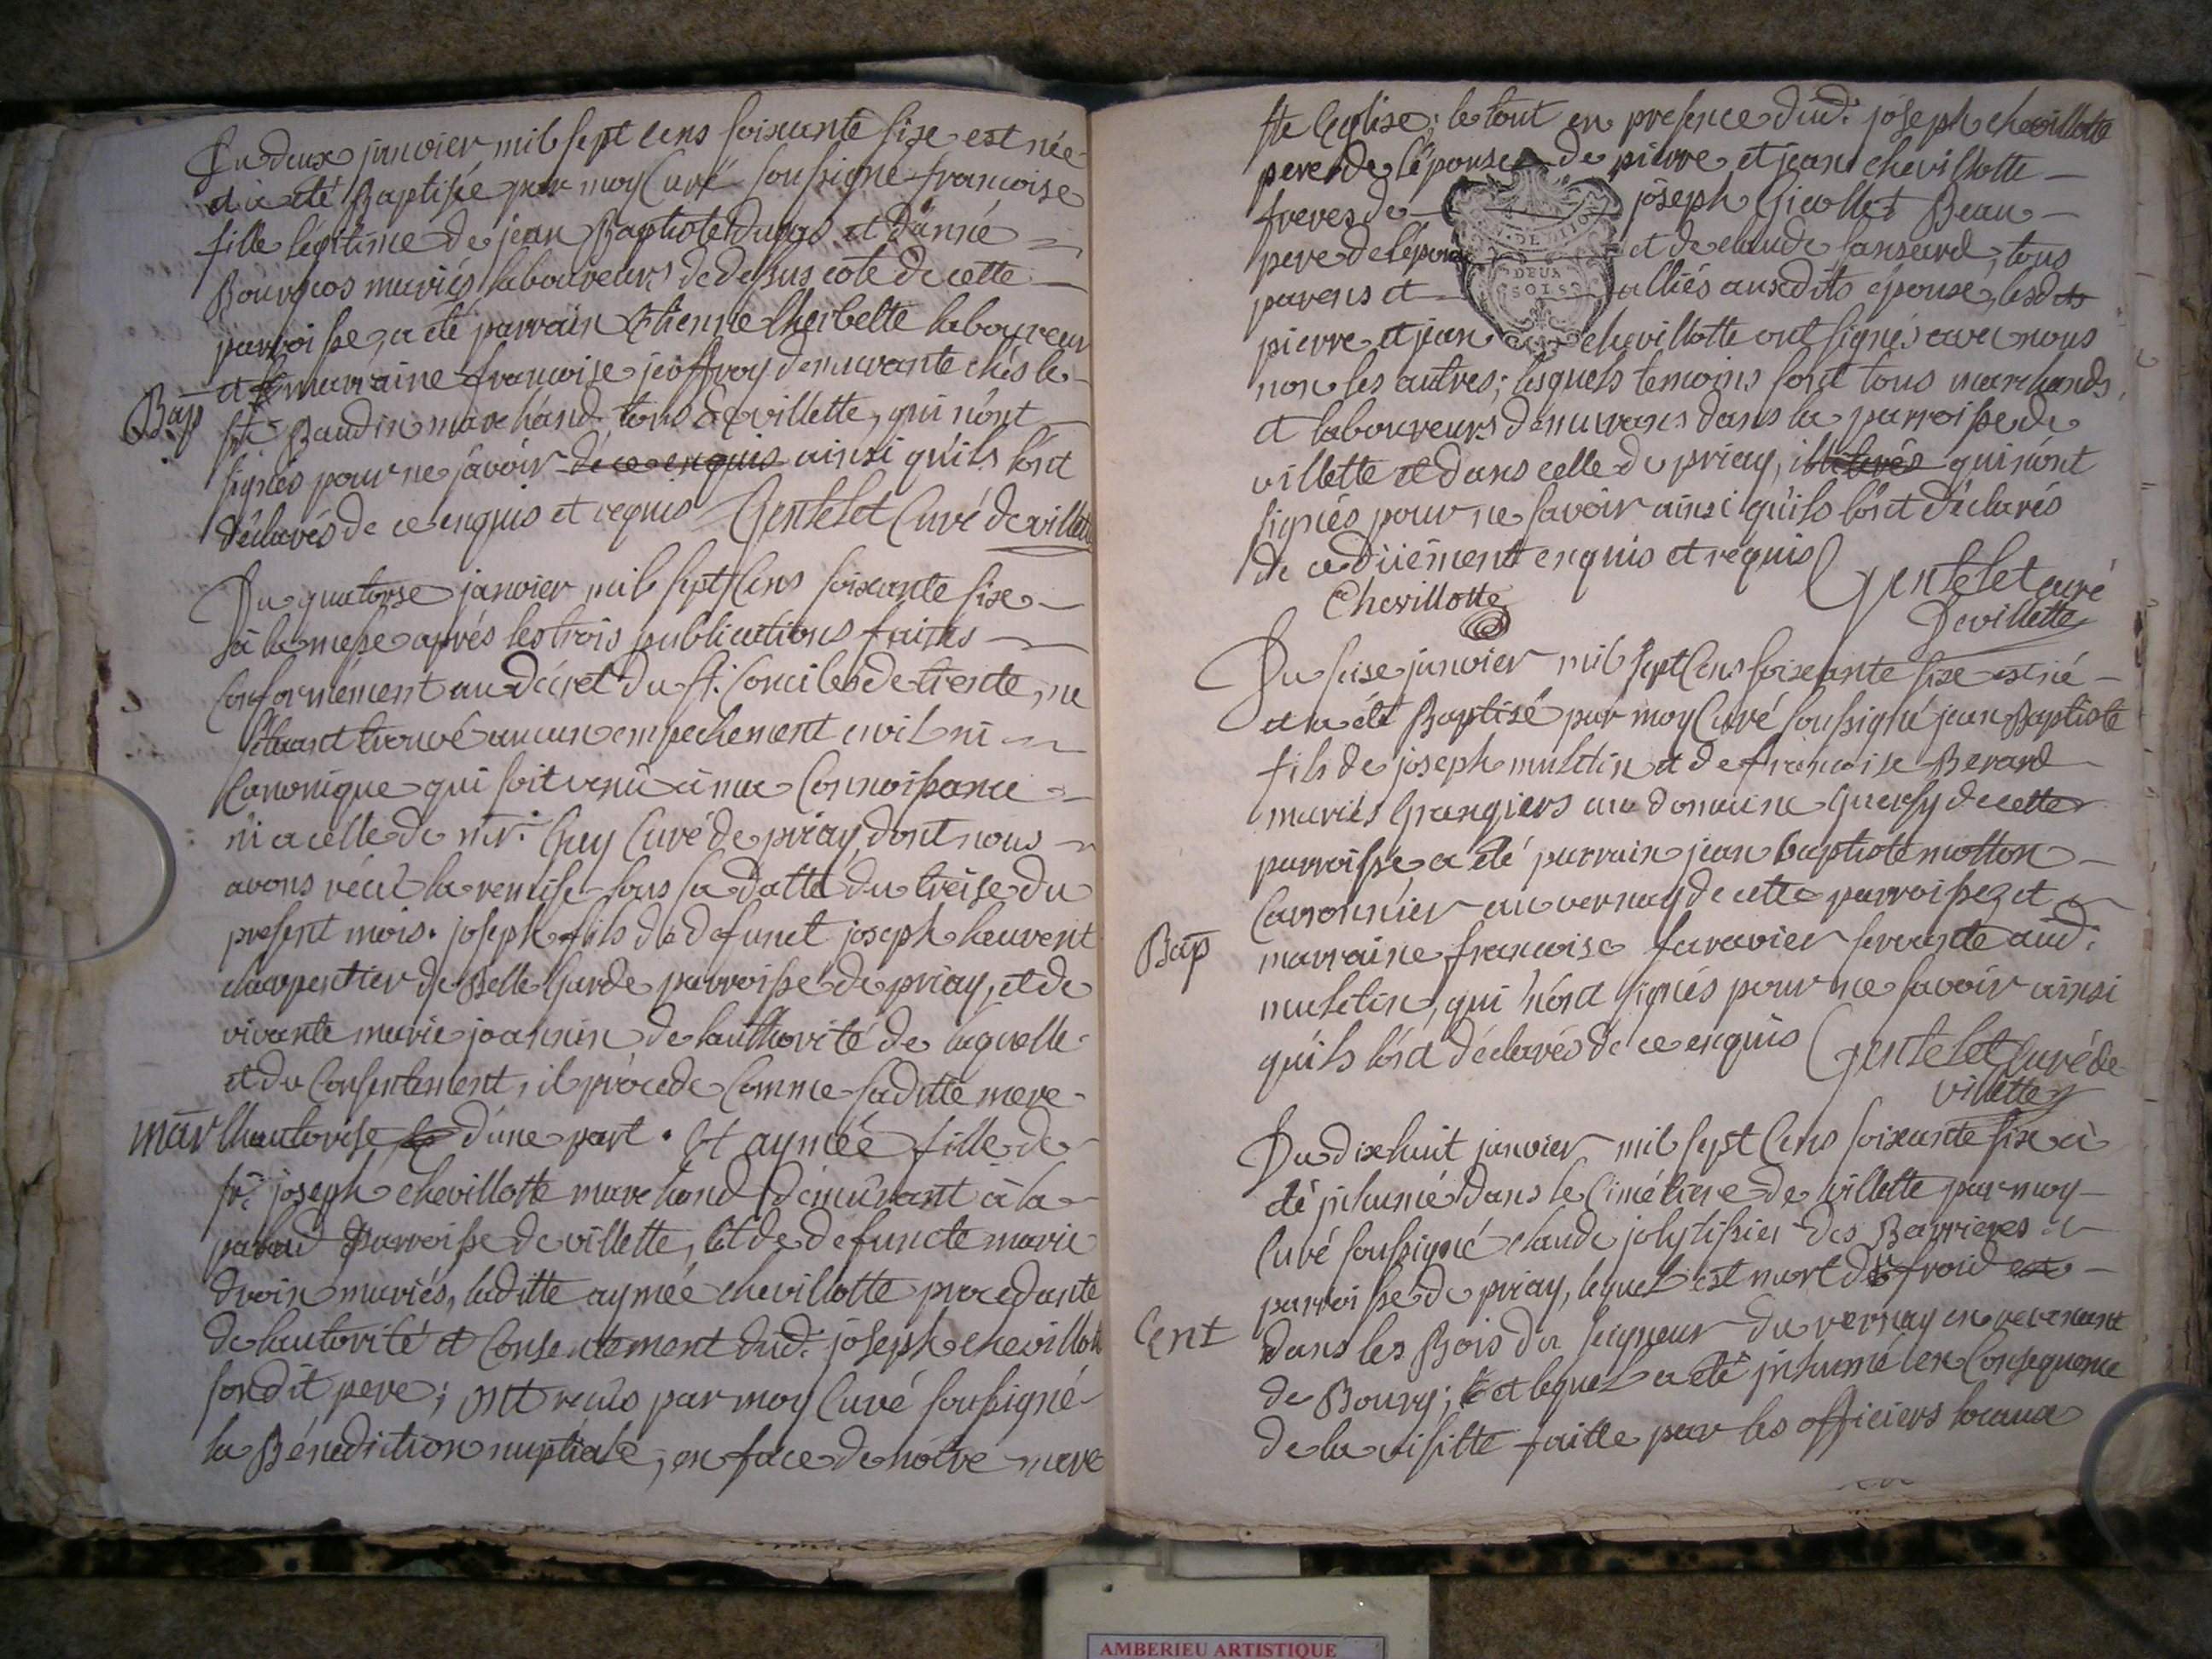 Du deux janvier mil sept cens soixante sixe est née
et a été Baptisée par moy Curé soussigné francoise
fille légitime de jean Baptiste Dupras et d'anne
Bourgeos mariés laboureurs de dessus cote de cette
parroisse, a été parrain Etienne Lherbette laboureur
et marraine francoise jeoffroy demeurante chés le
Bap
sr. Baudin marchand tous de villette, qui n'ont
signés pour ne savoir de ce enquis ainsi qu'ils l'ont
déclarés de ce enquis et requis Gentelet Curé de villette
Du quatorse janvier mil sept Cens soixante sixe
à la messe aprés les trois publications faites
Conformément au Décret du st. Concile de trente, ne
s'étant trouvé aucun empechement civil ni
Canonique qui soit venu à ma Connoissance
ni a celle de mr. Guy Curé de priay, dont nous
avons récû la remise sous sa datte du treise du
present mois. joseph fils de defunct joseph heuvent
charpentier de Belle garde parroisse de priay, et de
vivante marie joannin de lauthorité de laquelle
et du Consentement, il procede Comme saditte mere
mar
lhautorise d'une part. Et aymée fille de
sr. joseph chevillotte marchand démeurant à la
parroisse de villette, et de defuncte marie
droin mariés, laditte aymée chevillotte procedante
de lautorité et Consentement dud. joseph chevillotte
sondit pere; ont recûs par moy Curé soussigné
la Bénédiction nuptiale, en face de nôtre mere
ste Eglise; le tout en presence dud. joseph chevillotte
pere de l'épouse de pierre et jean chevillotte
freres de joseph Gicollet Beau
pere de l'époux et de claude lansard, tous
parens et alliés ausdits épouse, lesdits
pierre et jean chevillotte ont signés avec nous
DEUX
SOLS
non les autres; lesquels temoins sont tous marchands
et laboureurs demeurans dans la parroisse de
villette et dans celle de priay, illiterés qui n'ont
signés pour ne savoir ainsi qu'ils l'ont déclarés
de ce duëment enquis et requis Gentelet curé
Chevillotte
De villette
Du seise janvier mil sept Cens soixante sixe est né
et a été Baptisé par moy Curé soussigné jean Baptiste
fils de joseph muletin et de francoise Berard
mariés Grangiers au domaine Guersy de cette
parroisse a été parrain jean baptiste motton
Caronnier au vernay de cette parroisse et
Bap
marraine francoise favavier servante aud.
muletin, qui n'ont signés pour ne savoir ainsi
qu'ils l'ont déclarés de ce enquis Gentelet Curé de
villette
Du dixhuit janvier mil sept Cens soixante sixe à
été inhumé dans le Cimétiere de villette par moy
Curé soussigné claude joly tissier des Barrieres
parroisse de priay, lequel est mort de froid
Cent
dans les Bois du seigneur du vernay en revenant
de Bourg; et lequel a été inhumé en Consequence
de la visitte faitte par les officiers locaux
AMBERIEU ARTISTIQUE